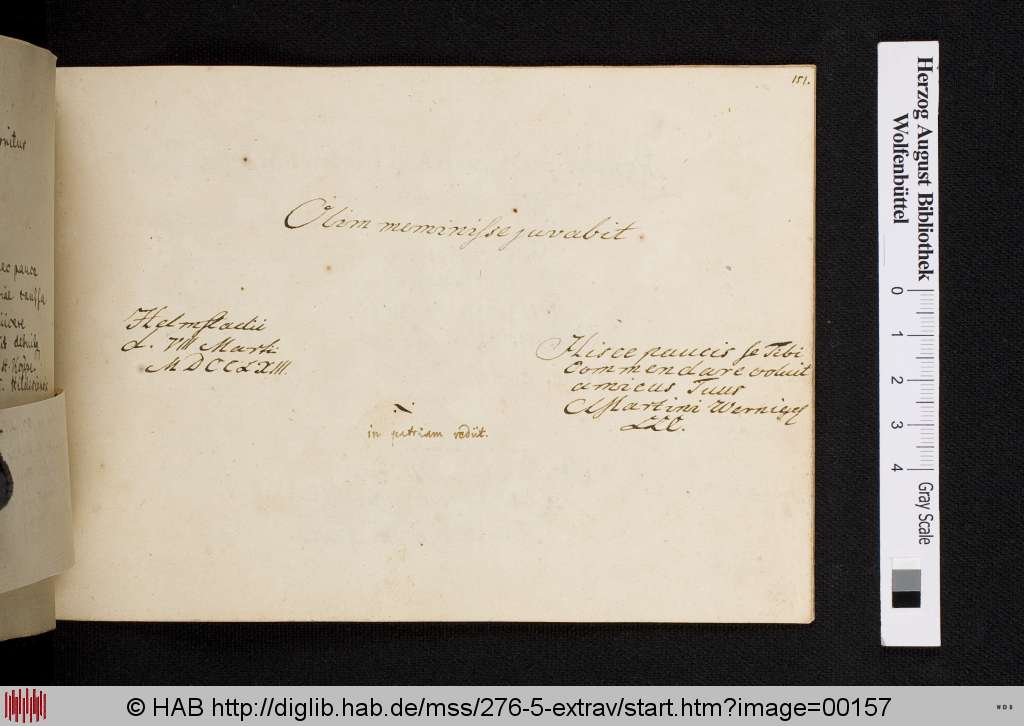 151.
Olim meminisse juvabit
Helmstadii
d. VIII Marti
MDCCLXIII
Hisce paucis se Tibi
commendare voluit
amicus Tuus
Martini
LLC.
in patriam rediit.
nitur
pauca
Herzog August Bibliothek
Wolfenbüttel
0
1
2
3
4
Gray Scale
© HAB http://diglib.hab.de/mss/276-5-extrav/start.htm?image=00157